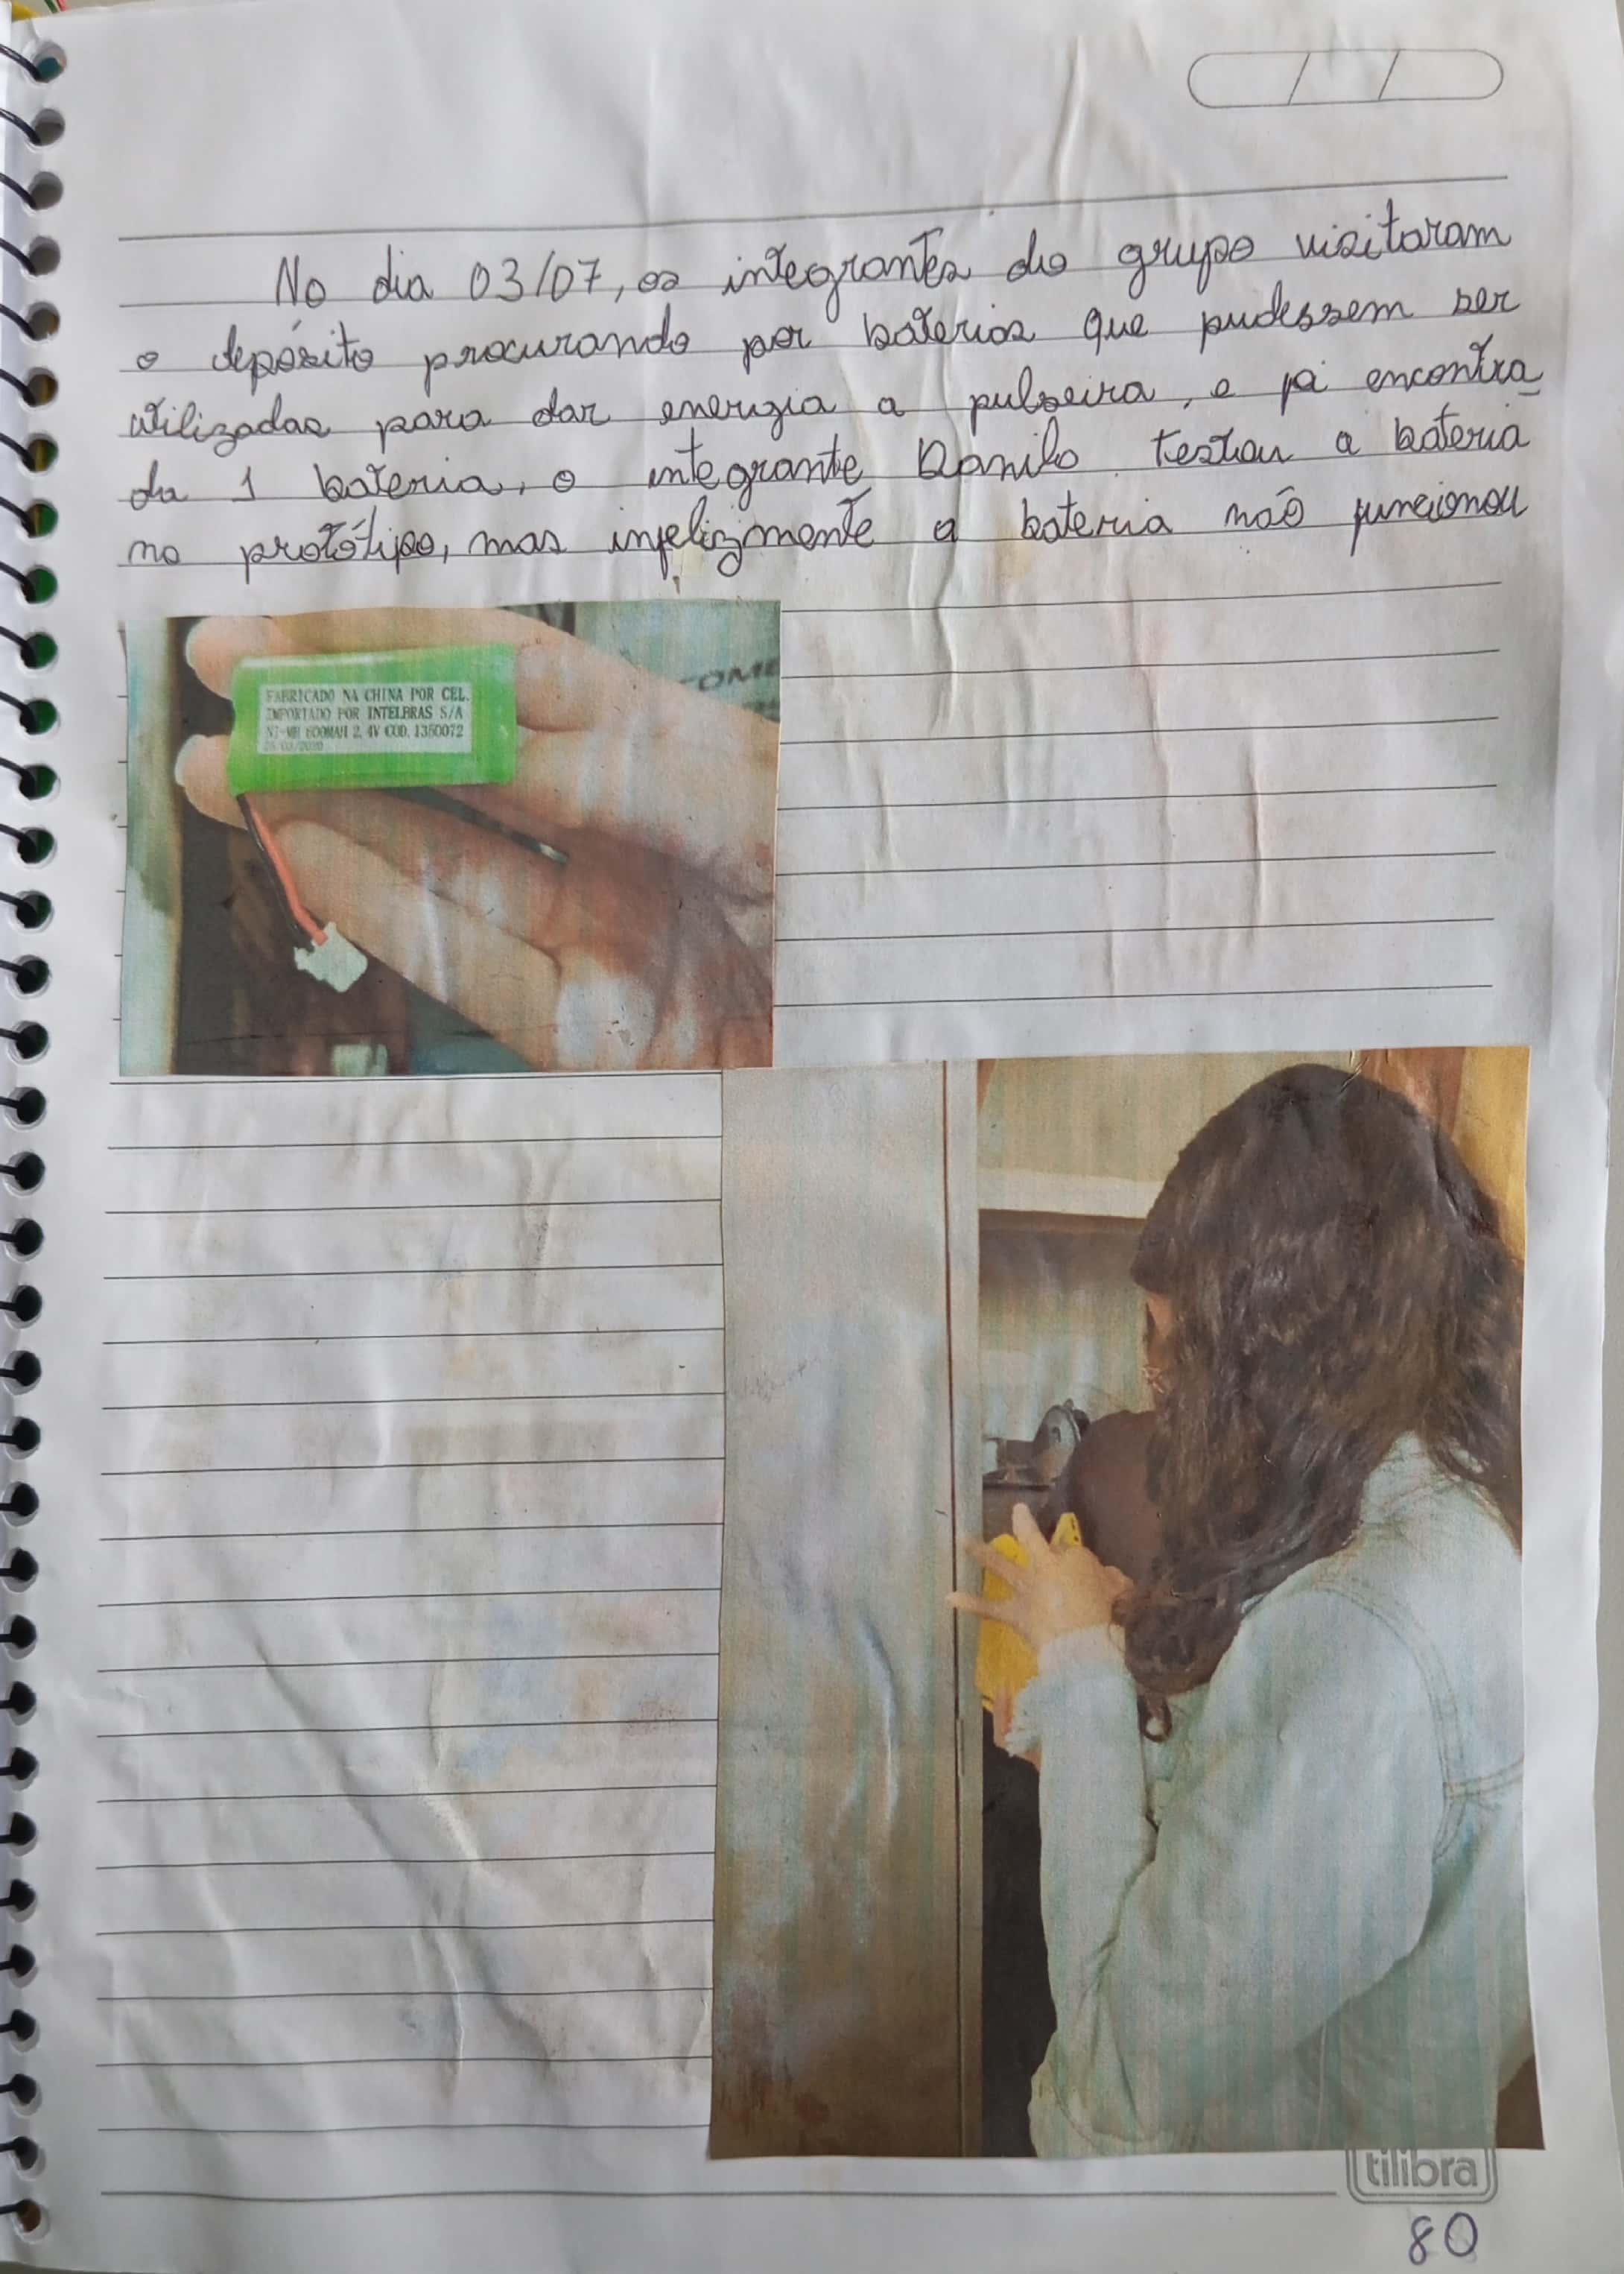 No dia 03/07, os integrantes do grupo visitaram
o depósito procurando por baterias que pudessem ser
utilizadas para dar energia a pulseira, e já encontra
da 1 bateria, o integrante Danilo testou a bateria
no protótipo, mas infelizmente a bateria não funcionou
FABRICADO NA CHINA POR CEL.
IMPORTADO POR INTELBRAS S/A
NI-MH 600MAH 2,4V COD. 1350072
tilibra
80